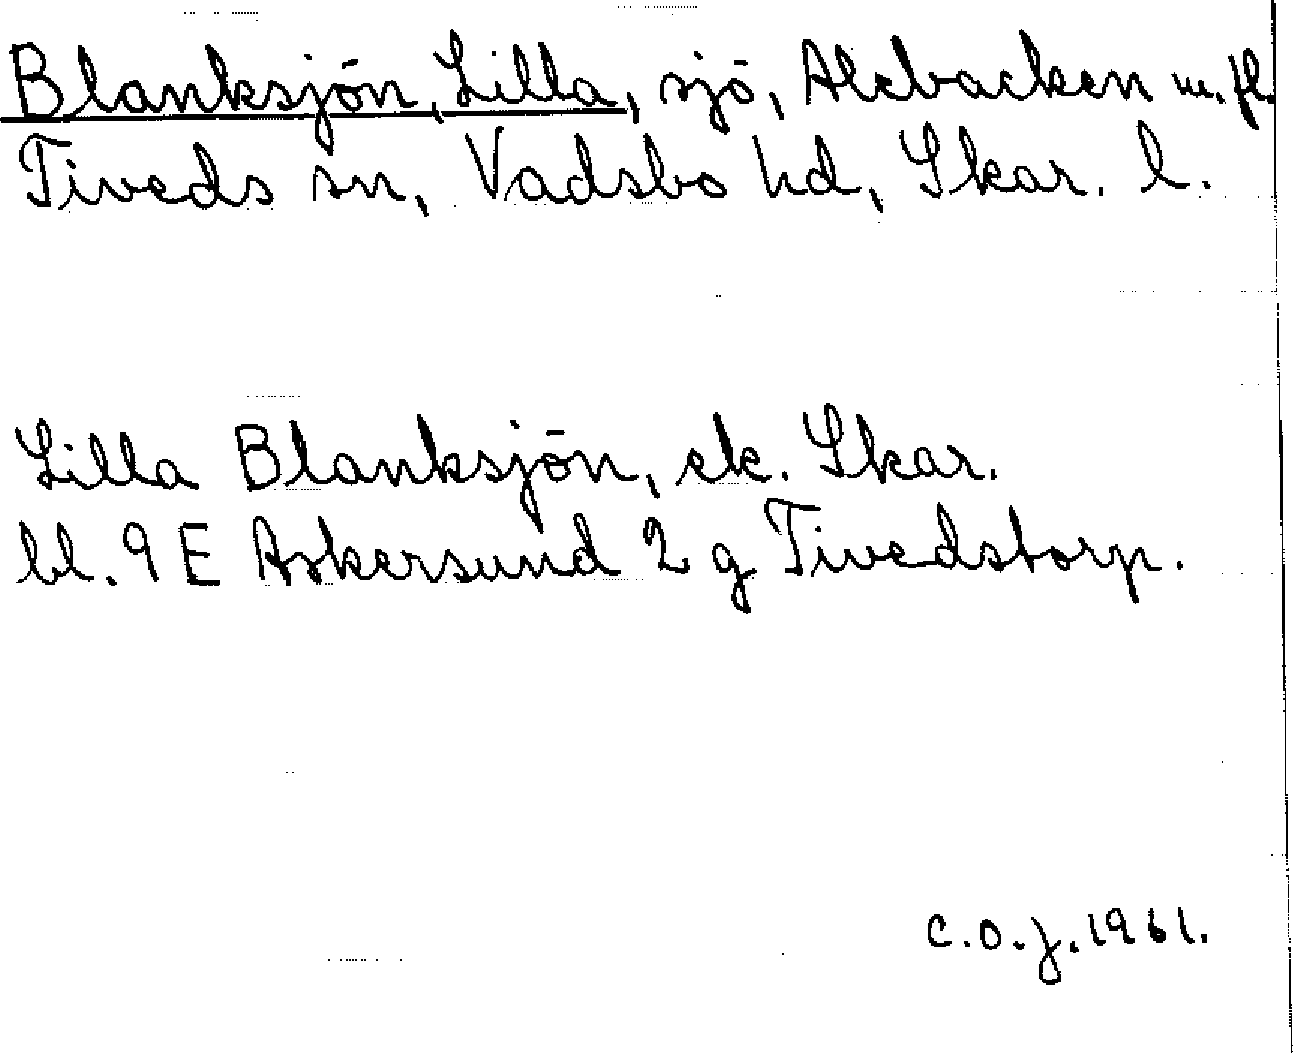 Blanksjön, Lilla, sjö, Alebacken m. fl.
Tiveds sn, Vadsbo hd, Skar. l.
Lilla Blanksjön, ek. Skar.
bl. 9 E Askersund 2 g Tivedstorp.
C.O.J. 1961.